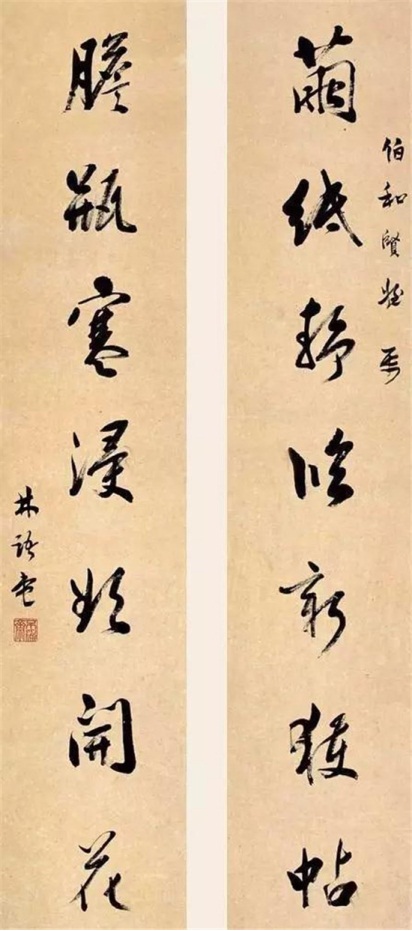 伯和賢姪
繭紙靜臨新獲帖
膽瓶寒浸欲開花
林語堂